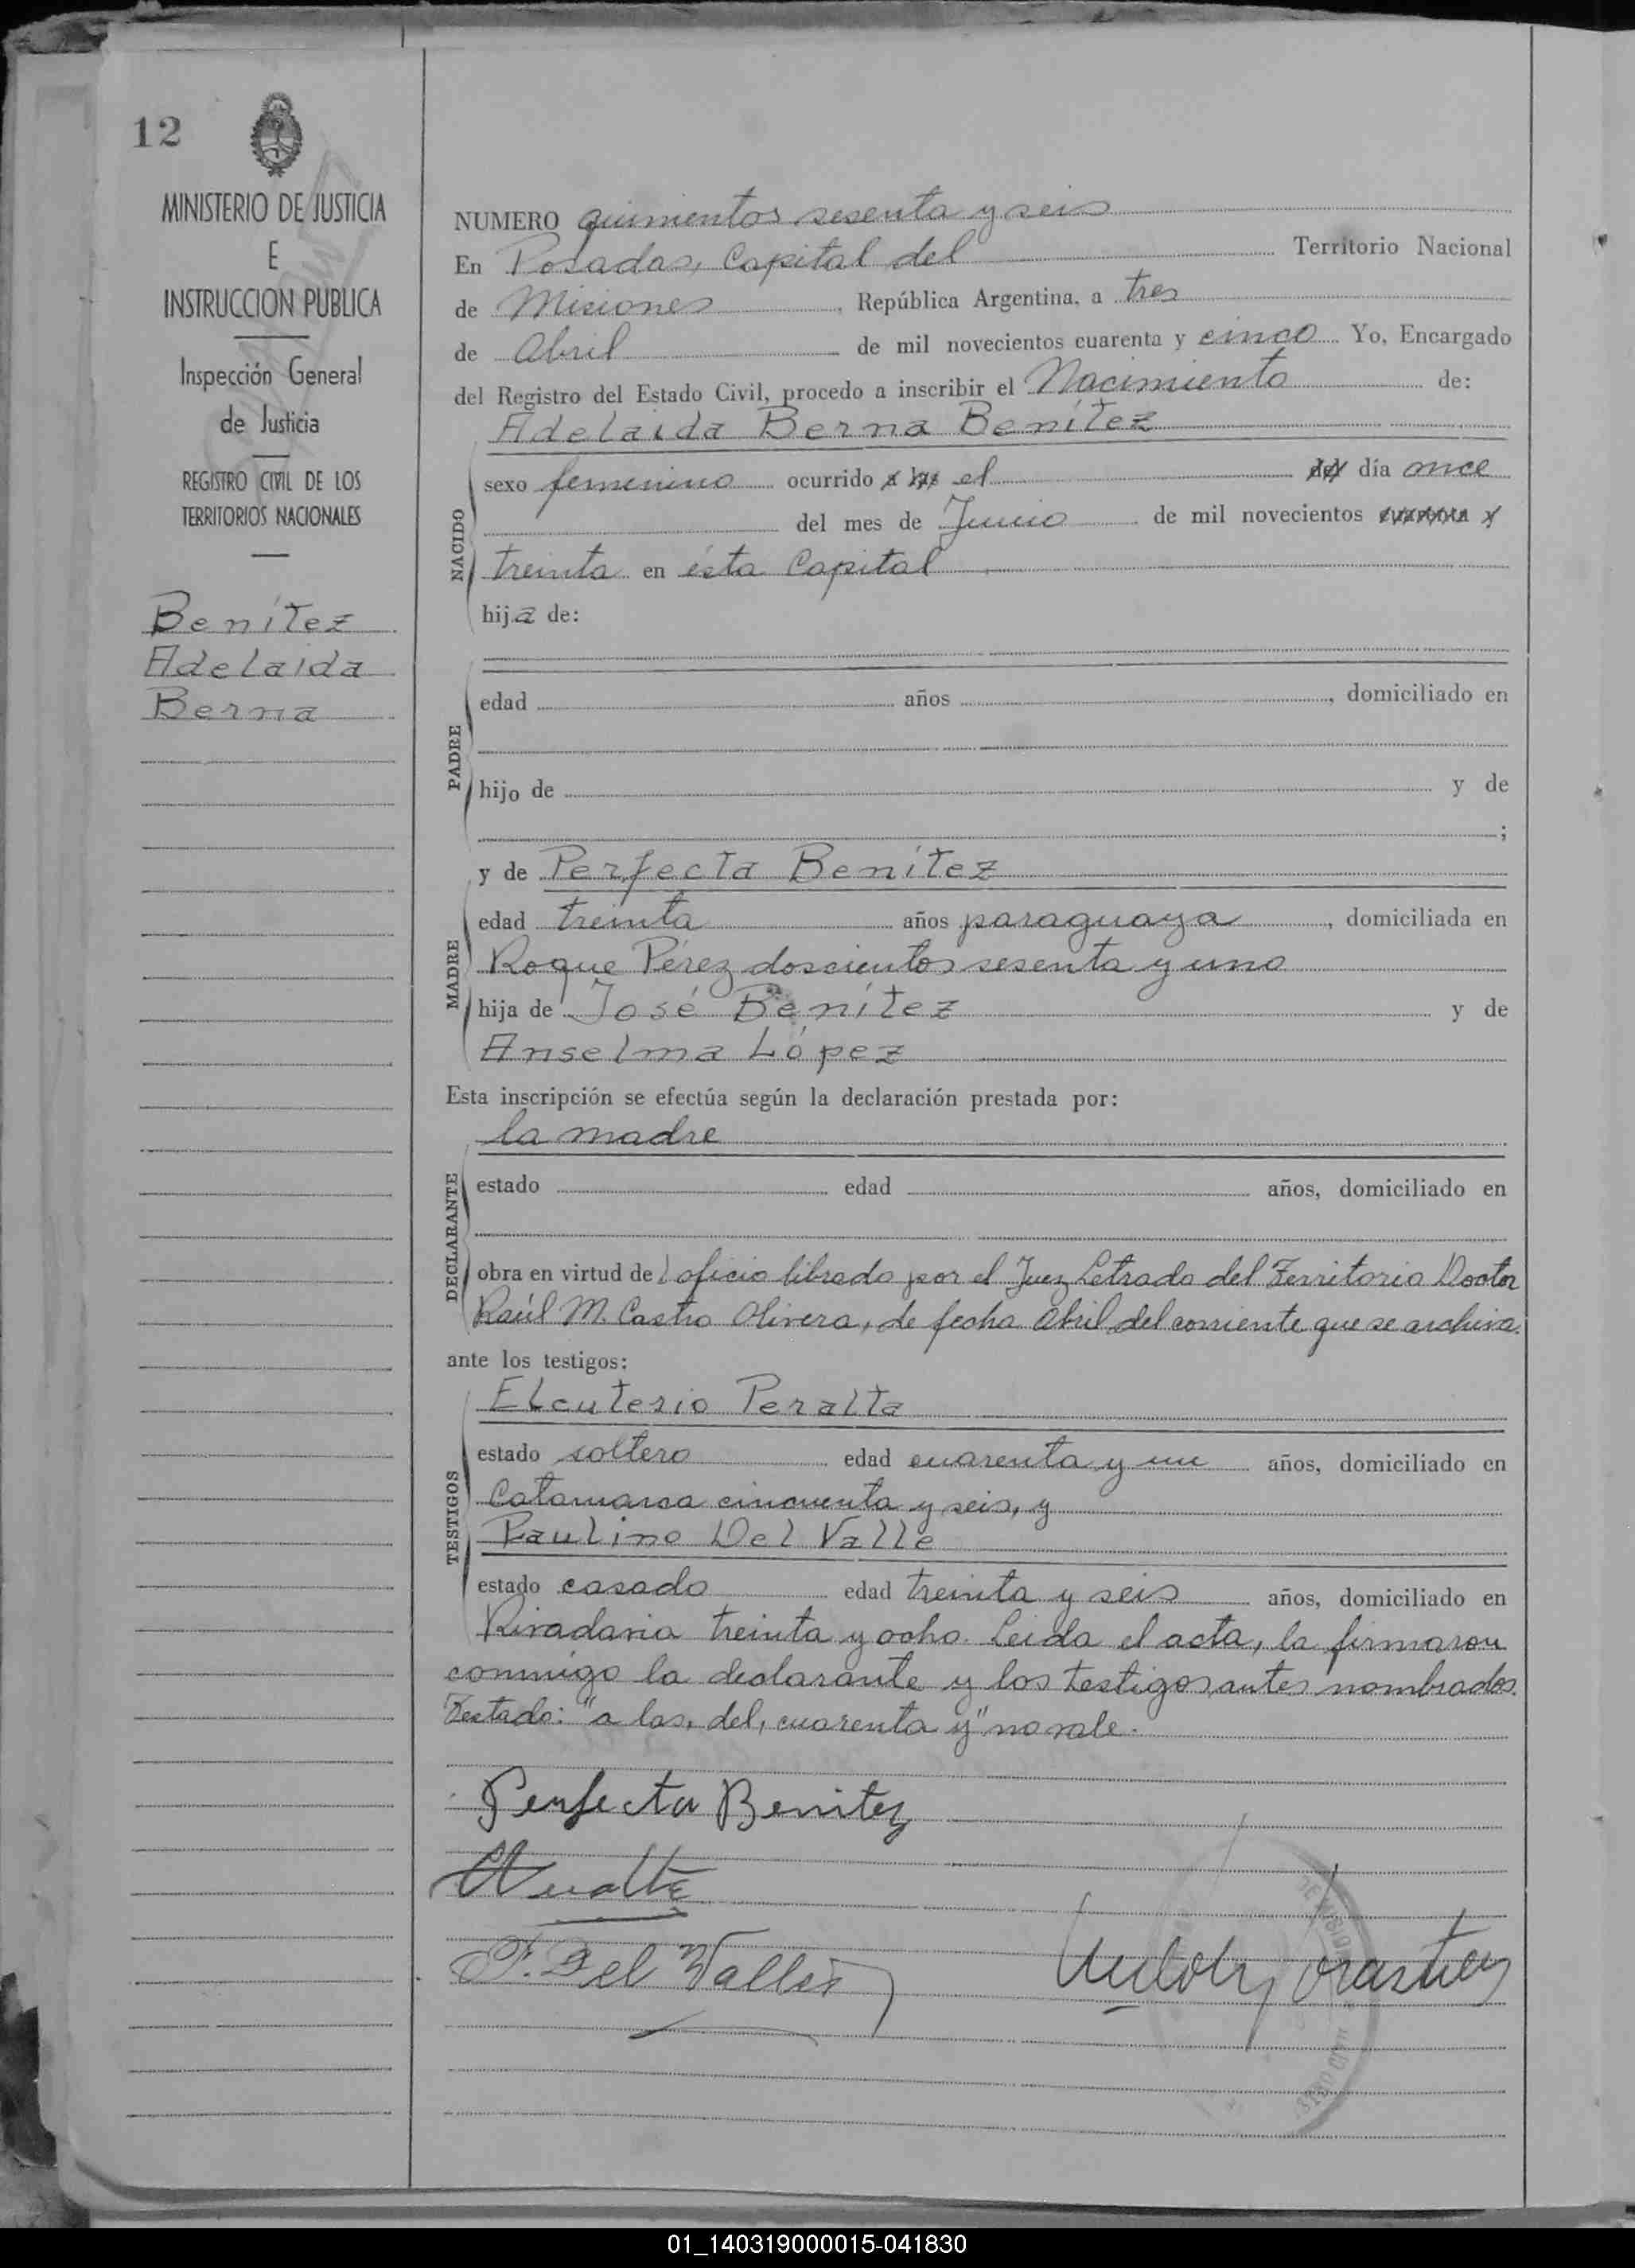 12
MINISTERIO DE JUSTICIA
E
INSTRUCCION PUBLICA
Inspección General
de Justicia
REGISTRO CIVIL DE LOS
TERRITORIOS NACIONALES
Benítez
Adelaida
Berna
NUMERO quinientos sesenta y seis
En Posadas, Capital del Territorio Nacional
de Misiones, República Argentina, a tres
de Abril de mil novecientos cuarenta y cinco Yo, Encargado
del Registro del Estado Civil, procedo a inscribir el Nacimiento de:
Adelaida Berna Benítez
NACIDO
sexo femenino ocurrido a las el del día once
del mes de Junio de mil novecientos cuarenta y
treinta en ésta Capital
hija de:
PADRE
edad años , domiciliado en
hijo de y de
;
MADRE
y de Perfecta Benítez
edad treinta años paraguaya, domiciliada en
Roque Pérez doscientos sesenta y uno
hija de José Benítez y de
Anselma López
Esta inscripción se efectúa según la declaración prestada por:
DECLARANTE
la madre
estado edad años, domiciliado en
obra en virtud del oficio librado por el Juez Letrado del Territorio Doctor
Raúl M. Castro Olivera, de fecha Abril del corriente que se archiva.
ante los testigos:
TESTIGOS
Eleuterio Peralta
estado soltero edad cuarenta y un años, domiciliado en
Catamarca cincuenta y seis, y
Paulino Del Valle
estado casado edad treinta y seis años, domiciliado en
Rivadavia treinta y ocho. Leída el acta, la firmaron
conmigo la declarante y los testigos antes nombrados.
Testado: "a las, del, cuarenta y" no vale.
Perfecta Benitez
P. Del Valle
01_140319000015-041830